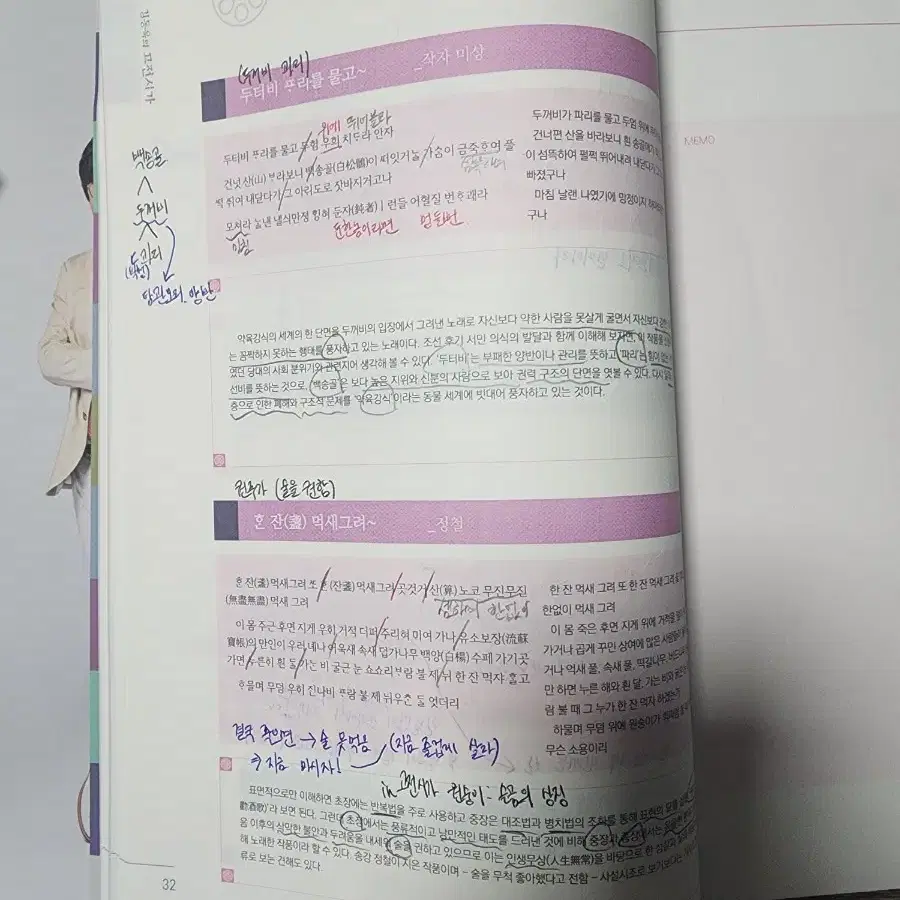 고전시가
(두꺼비 파리)
두터비 푸리를 물고~ _작자 미상
위에 뛰어올라
두터비 푸리를 물고 두험 우희 치두라 안자
건넛 산(山) 부라보니 백송골(白松鶻)이 써잇거늘 가슴이 금즉호여 풀
떡 쒸여 내닫다가 그 아리도로 잣바지거고나
모쳐라 늘낸 낼싀만졍 힝혀 둔자(鈍者)ㅣ런들 어혈질 번호괘라
마침 둔한 놈이라면 멍들번
두꺼비가 파리를 물고 두엄 위에
건너편 산을 바라보니 흰 송골매가
이 섬뜩하여 펄쩍 뛰어내려 내닫다가
빠졌구나
마침 날랜 나였기에 망정이지
구나
MEMO
백송골
두꺼비
파리
(백성)
탐관오리, 양반
약육강식의 세계의 한 단면을 두꺼비의 입장에서 그려낸 노래로 자신보다 약한 사람을 못살게 굴면서 자신보다
는 꼼짝하지 못하는 행태를 풍자하고 있는 노래이다. 조선 후기 서민 의식의 발달과 함께 이해해 보자면, 이 작품을
였던 당대의 사회 분위기와 관련지어 생각해 볼 수 있다. '두터비'는 부패한 양반이나 관리를 뜻하고, '파리'는 힘이 없는
선비를 뜻하는 것으로, '백송골'은 보다 높은 지위와 신분의 사람으로 보아 권력 구조의 단면을 엿볼 수 있다. 다시
층으로 인한 폐해와 구조적 문제를 '약육강식'이라는 동물 세계에 빗대어 풍자하고 있는 것이다.
권주가 (술을 권함)
혼 잔(盞) 먹새그려~ _정철
혼 잔(盞) 먹새그려 또 혼 잔(盞) 먹새그려 곳것거 산(算) 노코 무진무진
(無盡無盡) 먹새 그려
셈하며 한없이
이 몸 주근 후면 지게 우희 거적 더퍼 주리혀 미여 가나 유소보장(流蘇
寶帳)의 만인이 우러 녜나 어욱새 속새 덥가나무 백양(白楊) 수페 가기곳
가면 누른히 흰 돌 가는 비 굴근 눈 쇼쇼리부람 불 제 뉘 한 잔 먹쟈 홀고
흐물며 무덤 우희 진나비 푸람 불 제 뉘우촌 둘 엇더리
한 잔 먹새 그려 또 한 잔 먹새 그려
한없이 먹새 그려
이 몸 죽은 후면 지게 위에 거적을
가거나 곱게 꾸민 상여에 많은 사람들이
거나 억새 풀, 속새 풀, 떡갈나무, 버드나무
만 하면 누른 해와 흰 달, 가는 비와
람 불 때 그 누가 한 잔 먹자 하겠는가
하물며 무덤 위에 원숭이가
무슨 소용이리
결국 죽으면 → 술 못먹음 (지금 즐겁게 살라)
지금 마시자!
in 고전시가 원숭이 : 슬픔의 상징
표면적으로만 이해하면 초장에는 반복법을 주로 사용하고 중장은 대조법과 병치법의 조화를 통해 표현의 묘를
勸酒歌)'라 보면 된다. 그런데 초장에서는 풍류적이고 낭만적인 태도를 드러낸 것에 비해 중장과 종장에서는
음 이후의 삭막한 불안과 두려움을 내세워 술을 권하고 있으므로 이는 인생무상(人生無常)을 바탕으로 한
해 노래한 작품이라 할 수 있다. 송강 정철이 지은 작품이며 – 술을 무척 좋아했다고 전함 – 사설시조로 보기보다는
류로 보는 견해도 있다.
32